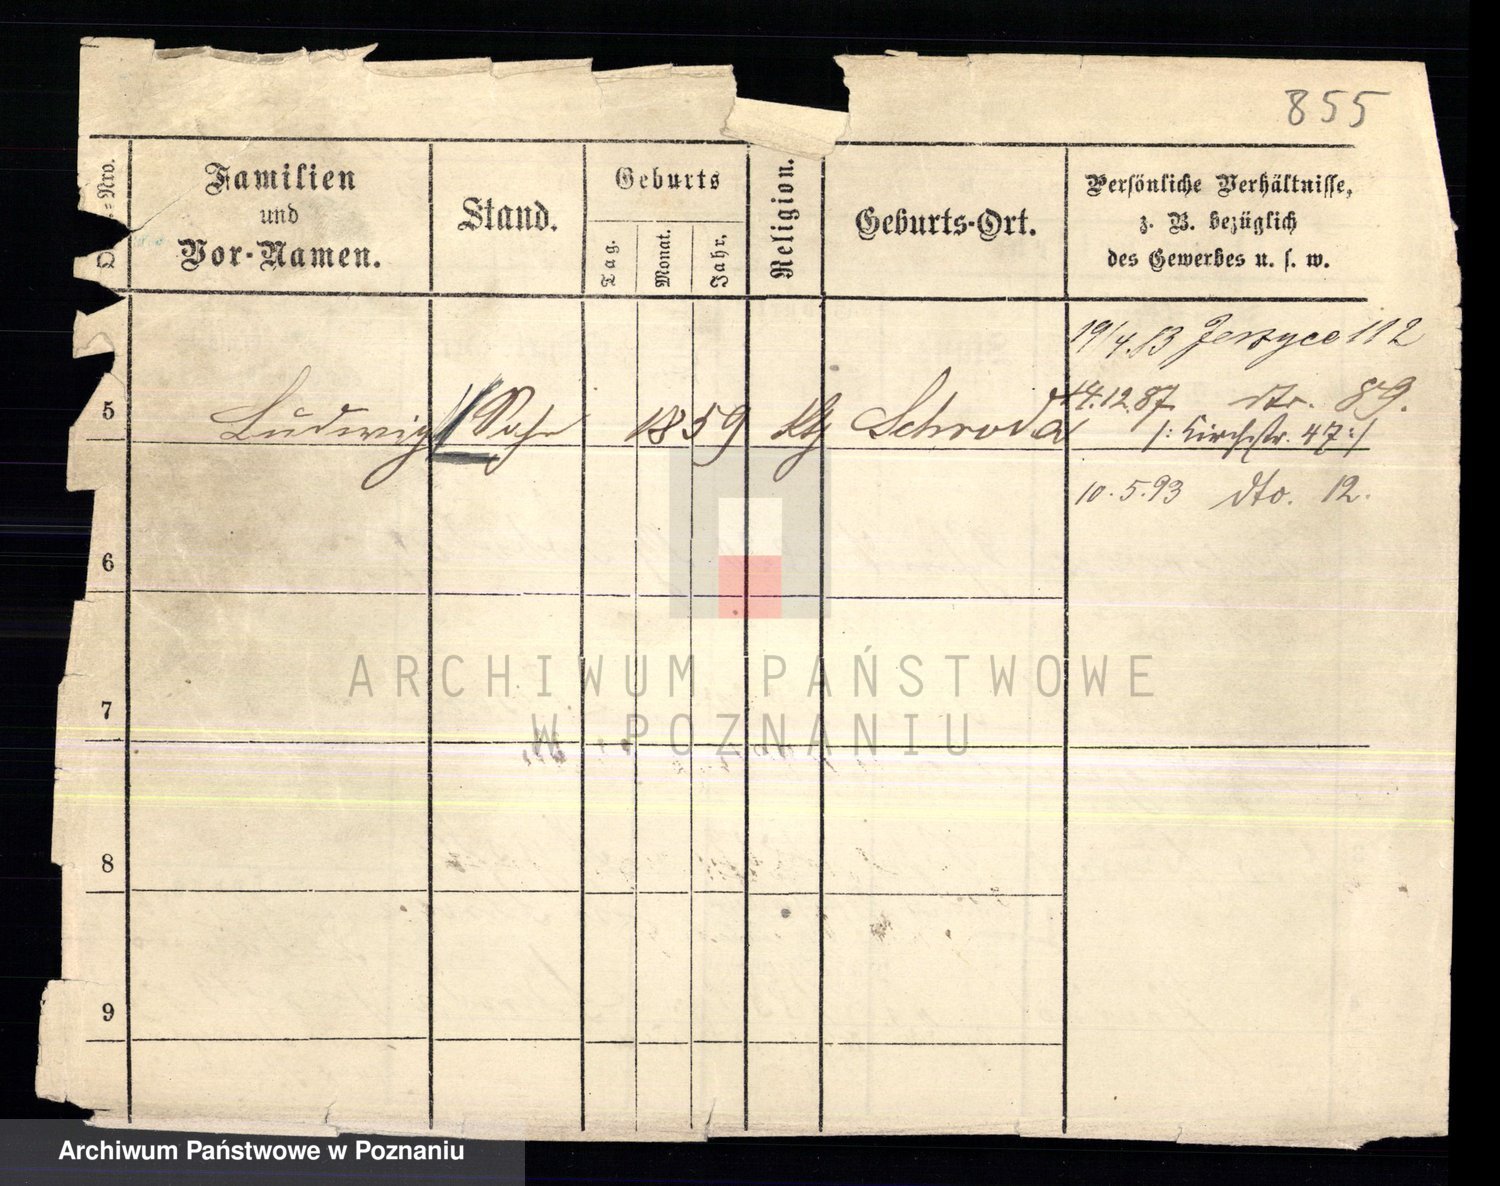 855
Nro.
Familien
und
Vor-Namen.
Stand.
Geburts
Tag.
Monat.
Jahr.
Religion.
Geburts-Ort.
Persönliche Verhältnisse,
z. B. bezüglich
des Gewerbes u. s. w.
19/4.83 Jerzyce 112
5 Ludwig Sohn 1859 Schroda 14.12.87. dto. 89.
/: Kirchstr. 47 :/
10.5.93 dto. 12.
6
7
8
9
ARCHIWUM PAŃSTWOWE
W POZNANIU
Archiwum Państwowe w Poznaniu